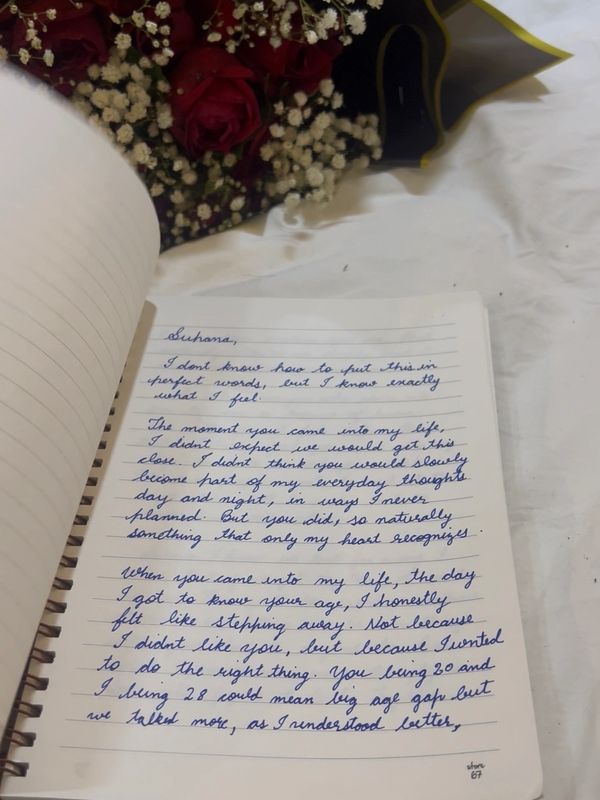 Suhana,
I dont know how to put this in
perfect words, but I know exactly
what I feel.
The moment you came into my life,
I didnt expect we would get this
close. I didnt think you would slowly
become part of my everyday thoughts
day and night, in ways I never
planned. But you did, so naturally
something that only my heart recognizes.
When you came into my life, the day
I got to know your age, I honestly
felt like stepping away. Not because
I didnt like you, but because I wnted
to do the right thing. You being 20 and
I being 28 could mean big age gap but
we talked more, as I understood better,
67